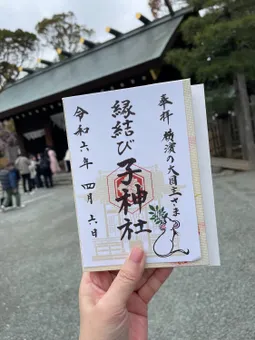 奉拝 相模の大国主さま
縁結び 子神社
令和六年 四月 六日